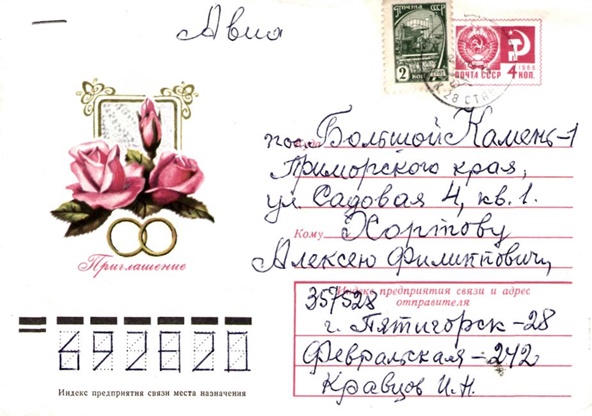 Авиа
2 ПОЧТА СССР
КОП.
1966
ПОЧТА СССР 4 КОП.
пос. Большой Камень-1
Приморского края,
ул Садовая 4, кв. 1.
Кому Хортову
Алексею Филипповичу,
Приглашение
Индекс предприятия связи и адрес
отправителя
357528
г. Пятигорск-28
Февральская-242
Кравцов И.Н.
692820
Индекс предприятия связи места назначения